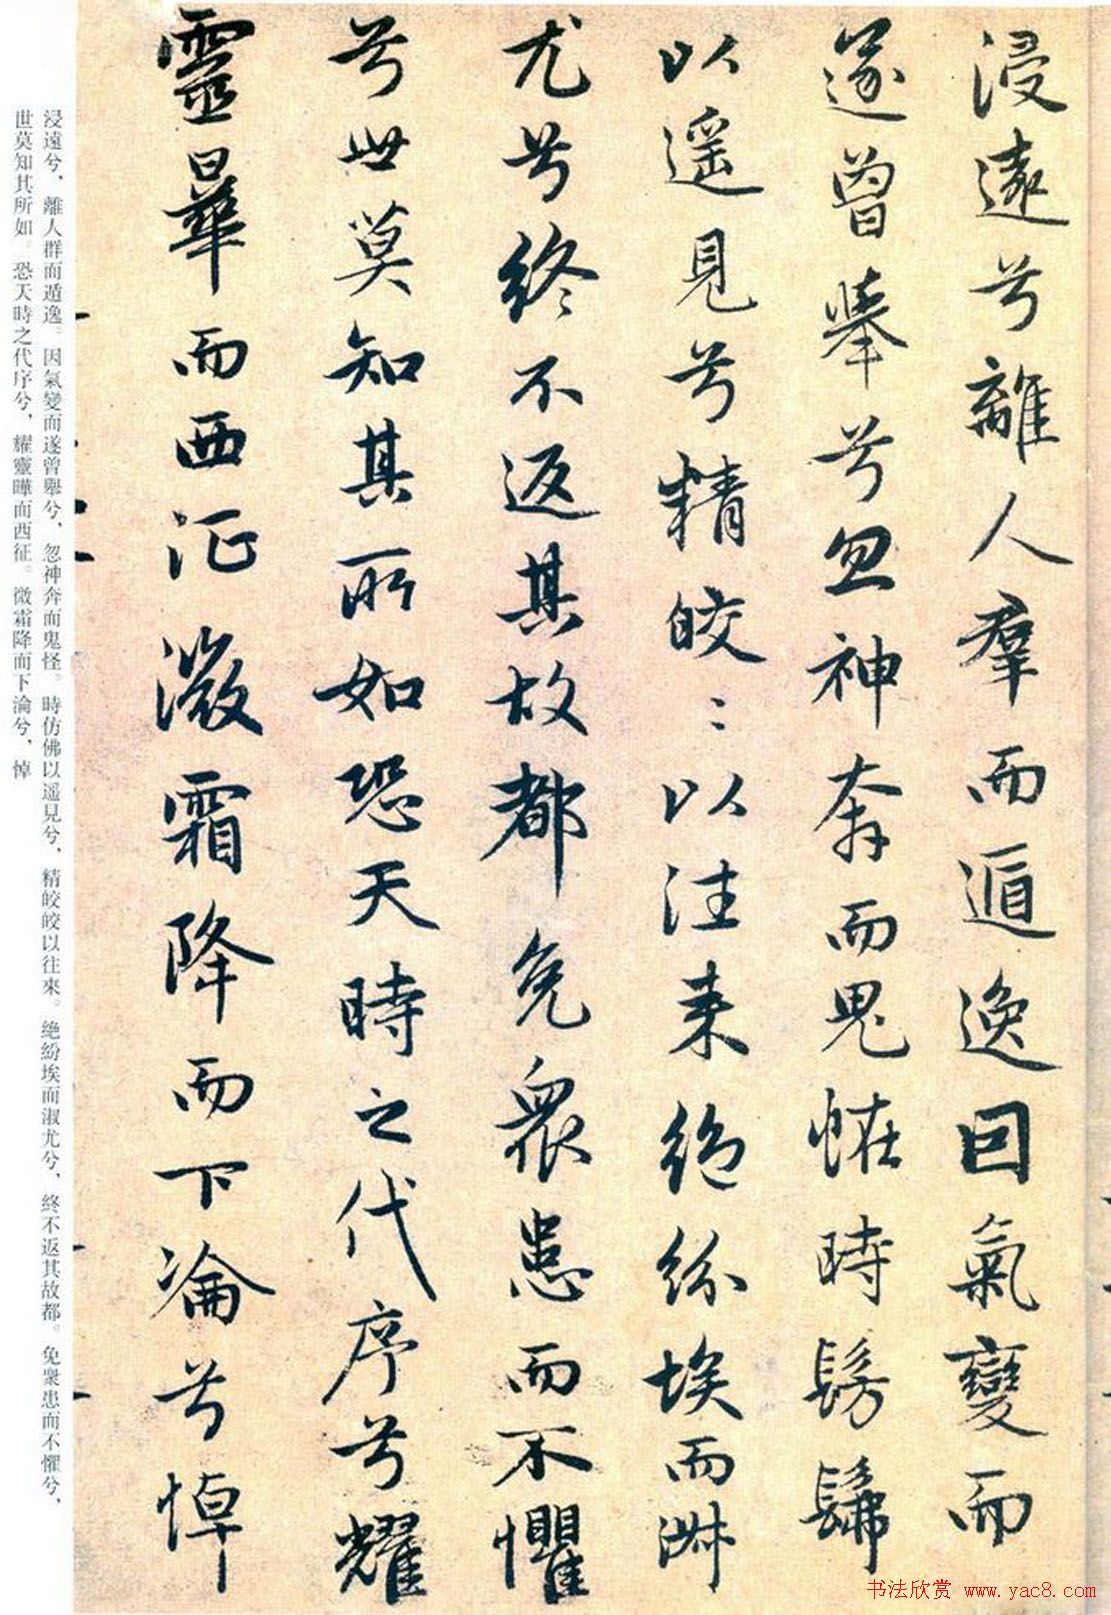 浸遠兮離人羣而遁逸因氣變而
遂曾舉兮忽神奔而鬼怪時髣髴
以遥見兮精皎〻以往来絶紛埃而淑
尤兮終不返其故都免衆患而不懼
兮世莫知其所如恐天時之代序兮耀
靈曄而西征微霜降而下淪兮悼
浸遠兮，離人群而遁逸。因氣變而遂曾舉兮，忽神奔而鬼怪。時仿佛以遥見兮，精皎皎以往來。絶紛埃而淑尤兮，終不返其故都。免衆患而不懼兮，
世莫知其所如。恐天時之代序兮，耀靈曄而西征。微霜降而下淪兮，悼
书法欣赏 www.yac8.com